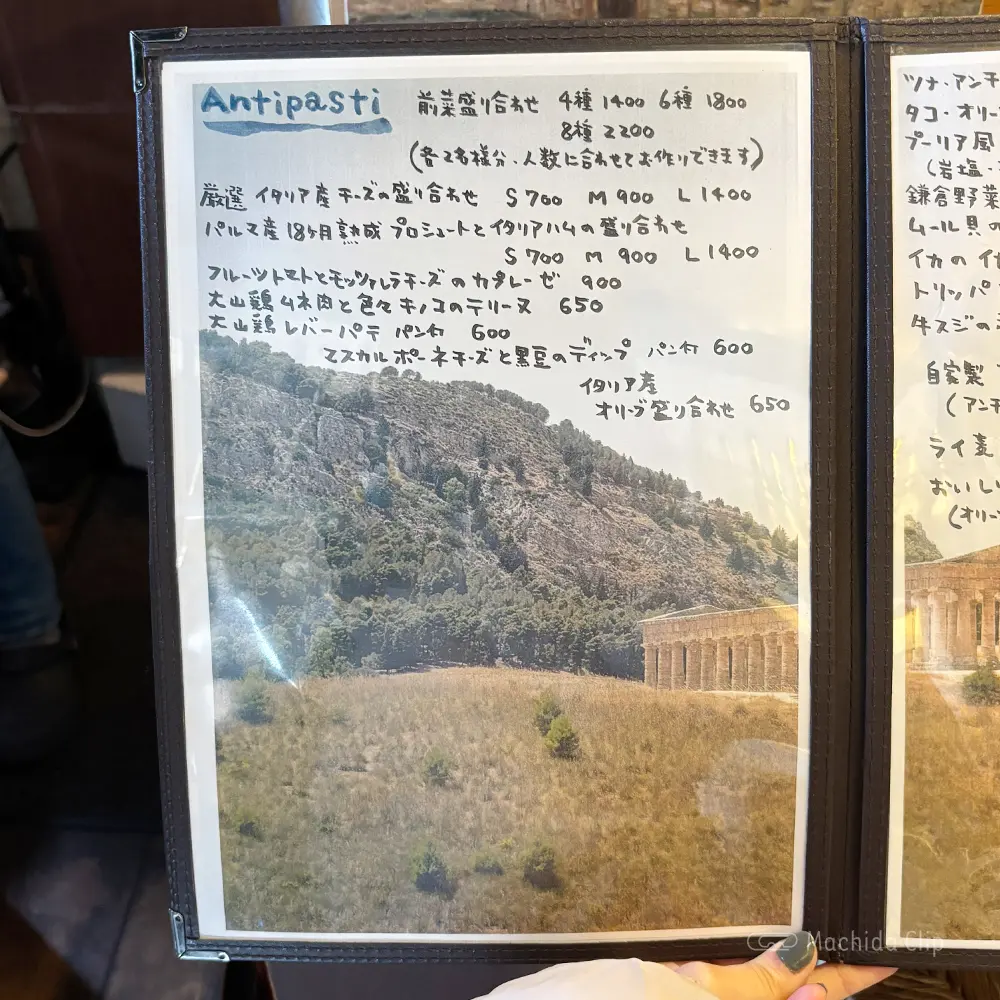 Antipasti 前菜盛り合わせ 4種 1400 6種 1800
8種 2200
(各2名様分・人数に合わせてお作りできます)
厳選 イタリア産 チーズの盛り合わせ S 700 M 900 L 1400
パルマ産 18ヶ月熟成 プロシュートとイタリアハムの盛り合わせ
S 700 M 900 L 1400
フルーツトマトとモッツァレラチーズのカプレーゼ 900
大山鶏ムネ肉と色々キノコのテリーヌ 650
大山鶏レバーパテ パン付 600
マスカルポーネチーズと黒豆のディップ パン付 600
イタリア産
オリーブ盛り合わせ 650
ツナ・アンチ
タコ・オリー
プーリア風
(岩塩・
鎌倉野菜
ムール貝の
イカのイカ
トリッパ
牛スジの
自家製
(アンチ
ライ麦
おいしい
(オリー
Machida Clip